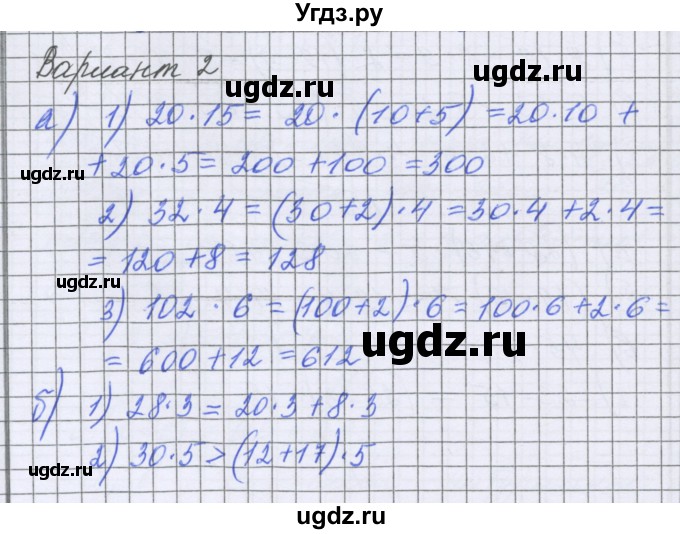 Угдз.ру
Вариант 2
ugdz.ru
ugdz.ru
а) 1) 20·15 = 20·(10+5) = 20·10 +
+ 20·5 = 200 + 100 = 300
ugdz.ru
ugdz.ru
2) 32·4 = (30+2)·4 = 30·4 + 2·4 =
= 120 + 8 = 128
ugdz.ru
3) 102·6 = (100+2)·6 = 100·6 + 2·6 =
= 600 + 12 = 612
ugdz.ru
б) 1) 28·3 = 20·3 + 8·3
2) 30·5 > (12+17)·5
ugdz.ru
ugdz.ru
ugdz.ru
ugdz.ru